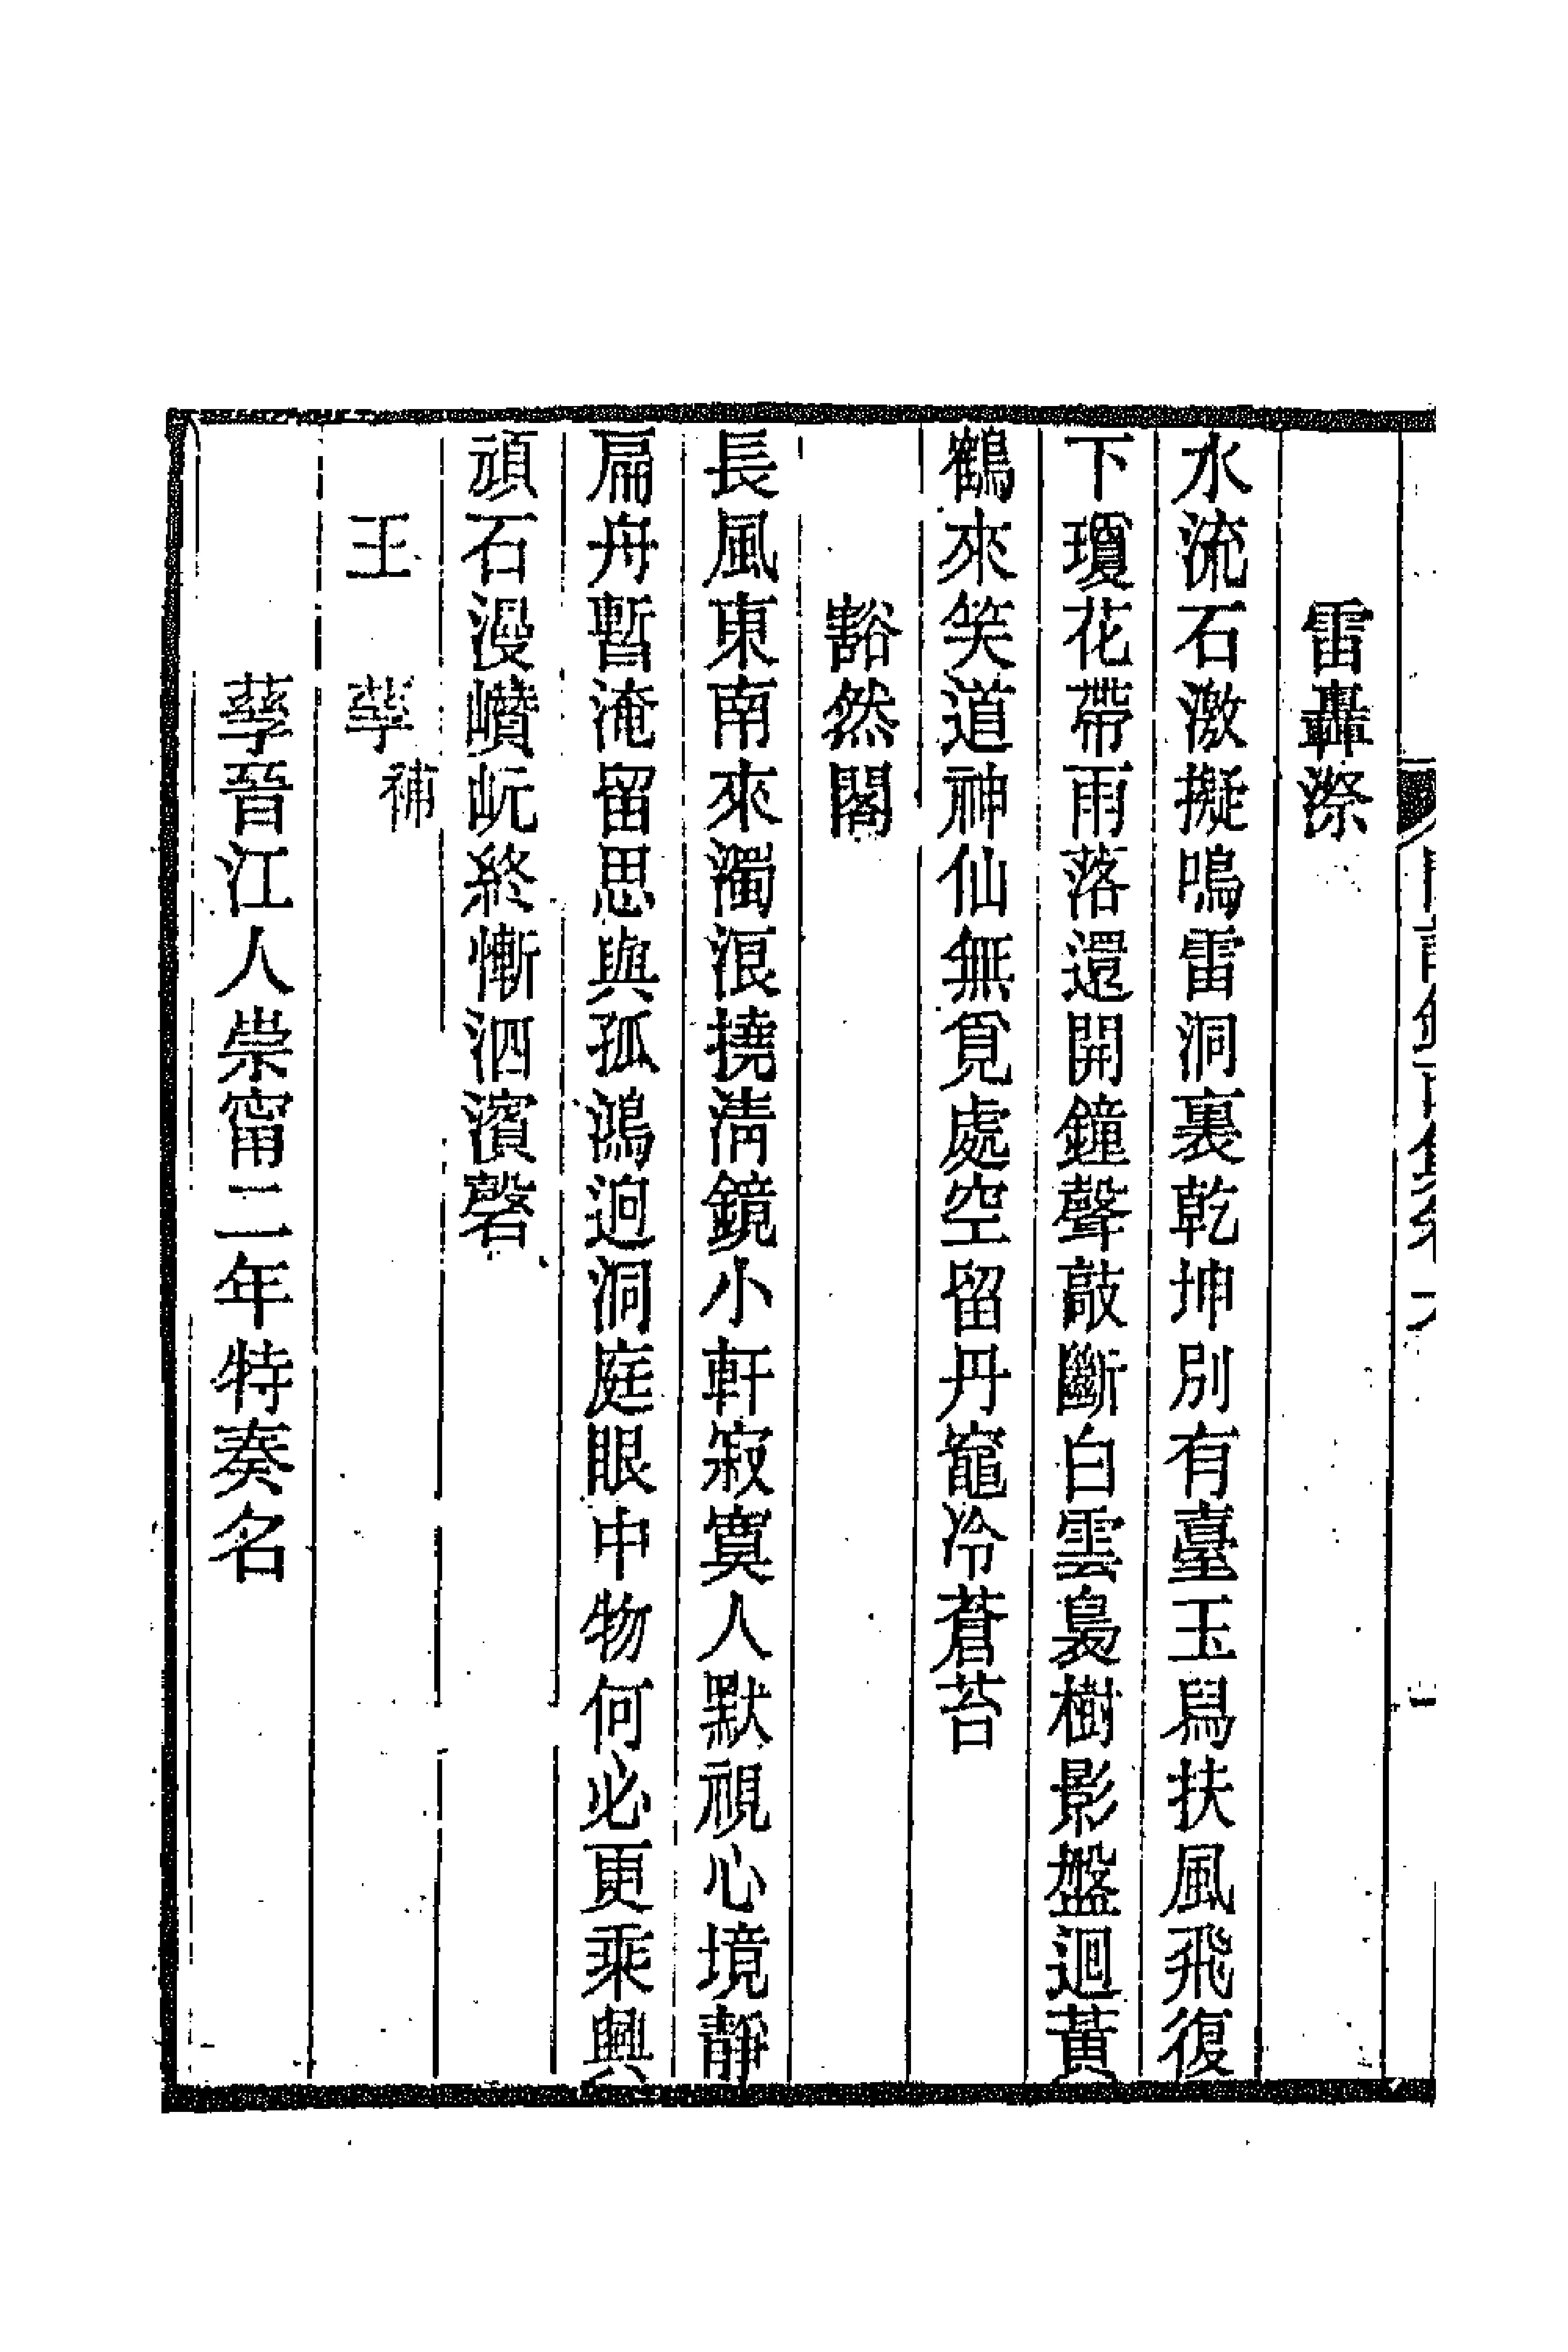 雷轟漈
水流石激擬鳴雷洞裏乾坤別有臺玉舄扶風飛復
下瓊花帶雨落還開鐘聲敲斷白雲裊樹影盤迴黃
鶴來笑道神仙無覓處空留丹竈冷蒼苔
豁然閣
長風東南來濁浪撓淸鏡小軒寂寞人默視心境靜
扁舟暫淹留思與孤鴻迥洞庭眼中物何必更乘興
頑石漫巑岏終慚泗濱磬
王 孳 補
孳晉江人崇甯二年特奏名